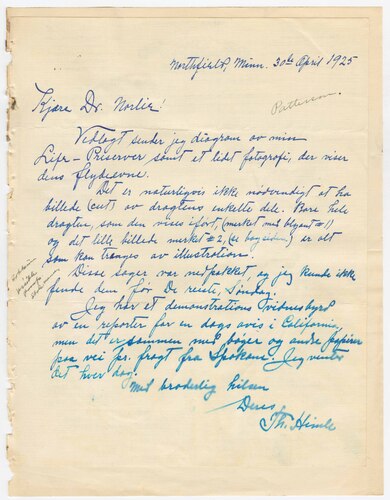 Northfield, Minn. 30te April 1925
Kjære Dr. Norlie!
Patterson.
Vedlagt sender jeg diagram av min
Life-Preserver samt et lidet fotografi, der viser
dens flydeevne.
Det er naturligvis ikke nödvendigt at ha
billede (cut) av dragtens enkelte dele. Bare hele
dragten, som den vises ifört, (merket med blyant=1)
og det lille billede merket=2, er alt
som kan trænges av illustration.
Disse sager var nedpakket, og jeg kunde ikke
finde dem för De reiste, Söndag.
Jeg har et demonstrations Vidnesbyrd
av en reporter for en dags avis i California,
men det er sammen med böger og andre papirer
paa vei pr. fragt fra Spokane. Jeg venter
det hver dag.
Med broderlig hilsen
Deres
Th. Himle